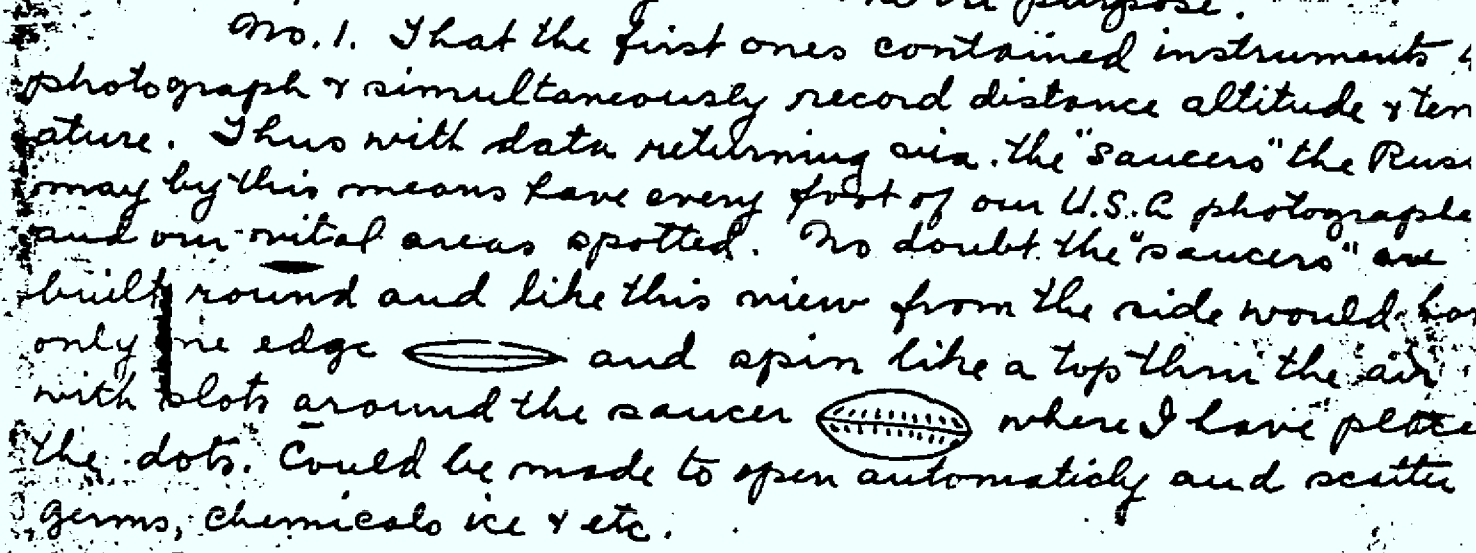 purpose.
No. 1. That the first ones contained instruments
photograph & simultaneously record distance altitude & tem
ature. Thus with data returning via. the "saucers" the Rus
may by this means have every foot of our U.S.A photographe
and our vital areas spotted. No doubt the "saucers" are
built round and like this view from the side would ha
only one edge and spin like a top thru the air
with slots around the saucer where I have place
the dots. Could be made to open automaticly and scatter
germs, chemicals ice & etc.